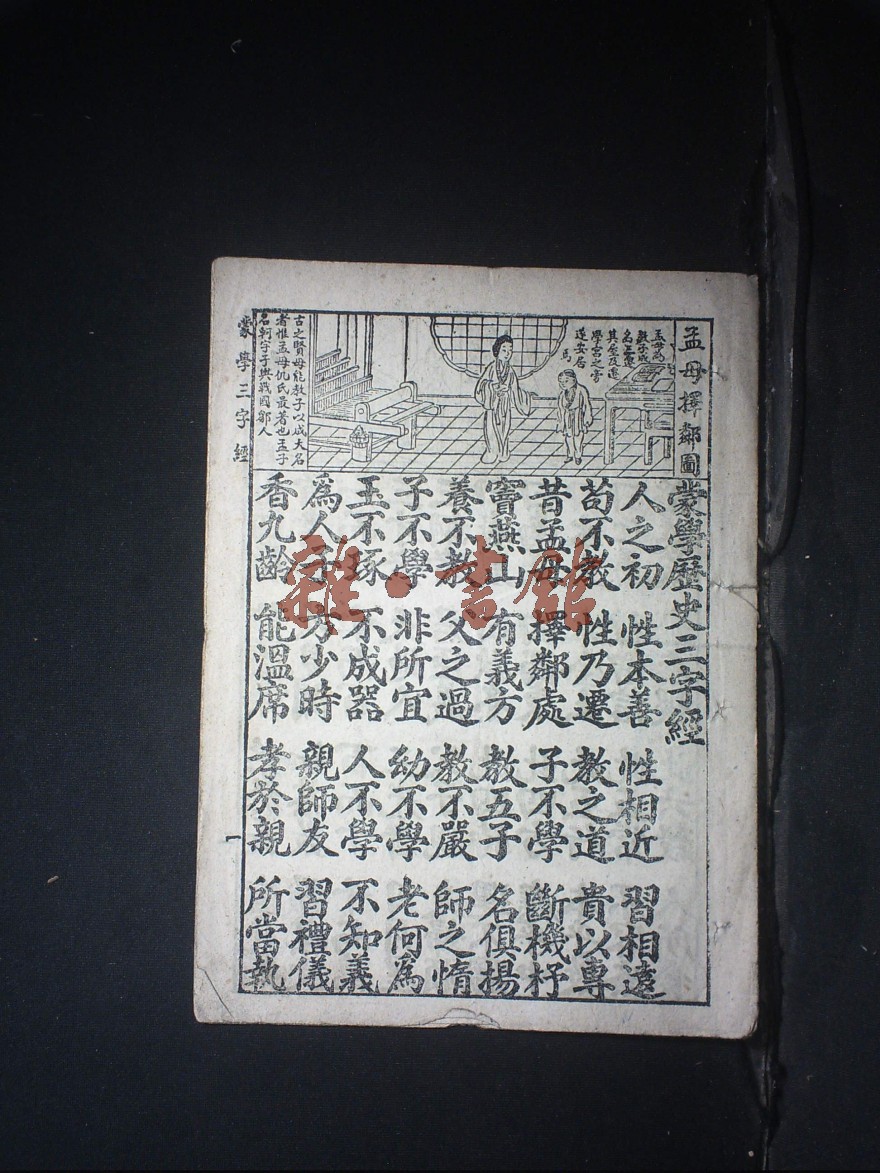 孟母擇鄰圖
孟母爲
教子成
名三遷
其居及遷
學宮之旁
遂安居
焉
古之賢母能教子以成大名
者惟孟母仉氏最著也孟子
名軻字子輿戰國鄒人
蒙學三字經
蒙學歷史三字經
人之初 性本善 性相近 習相遠
苟不教 性乃遷 教之道 貴以專
昔孟母 擇鄰處 子不學 斷機杼
竇燕山 有義方 教五子 名俱揚
養不教 父之過 教不嚴 師之惰
子不學 非所宜 幼不學 老何為
玉不琢 不成器 人不學 不知義
為人子 方少時 親師友 習禮儀
香九齡 能溫席 孝於親 所當執
一
雜·書館